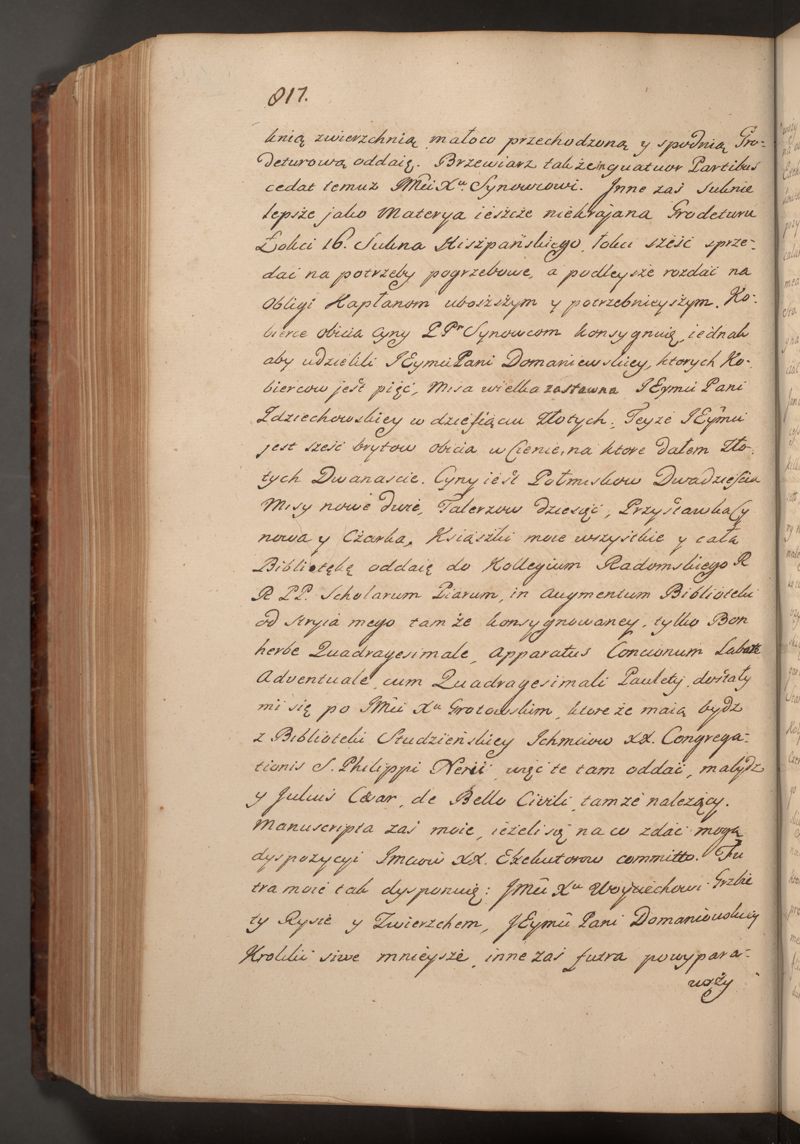 817.
knią zwierzchnią małoco przechodzoną y spodnią Gro-
deturową oddaię. Brzewiarz także in quatuor Partibus
cedat temuż JMci Xu Synowcowi. Jnne zaś Suknie
lepsze jako Materya ieszcze niekrajana Grodeturu
Łokci 16. Sukna Hiszpańskiego łokci sześć sprze-
dać na potrzeby pogrzebowe, a podleysze rozdać na
Obligi Kapłanom uboższym y potrzebnieyszym. Ko-
bierce obicia Cyny PPm Synowcom konsygnuię, iednak
aby udzielili JEymci Pani Domaniewskiey, ktorych Ko-
biercow jest pięć, Misa wielka zastawna JEymci Pani
Zdziechowskiey w dziesiąciu złotych, Teyże JEymci
jest sześć brytow obicia w Cienie, na ktore dałem Zło-
tych Dwanascie. Cyny iest Połmiskow Dwadzieścia
Misy nowe duże, Talerzow dziesięć, Przystawka Cy
nowa y Czarka. Ksiąszki moie wszystkie y całą
Bibliotękę oddaię do Kollegium Radomskiego R
R PP. Scholarum Piarum, in augmentum Biblioteki
od stryia mego tamże konsygnowaney, tylko Bon
herbe Quadragesimale, Apparatus Concionum Labatæ
Adventuale, cum Quadragesimali Paulety, dostały
mi się po JMci Xu Grotowskim, ktore że maią bydz
z Biblioteki Studzieńskiey Jchmciow XX. Congrega-
tionis S. Philippi Nerii, więc te tam oddać, ma bydz
y Julius Cæsar, de Bello Civili, tamże należący.
Manuscripta zaś moie, ieżeli się na co zdać mogą
dyspozycyi Jmciow XX. Exekutorow committo. Fu
tra moie tak dysponuię: JMci Xu Woyciechowi Grzbie
ty Rysie y Zwierzchem, JEymci Pani Domaniewskiey
Kroliki siwe mnieysze, inne zaś futra powypara-
wszy